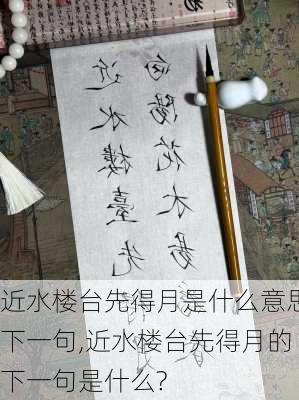 近水樓臺先
向陽花木易
近水楼台先得月是什么意思
下一句,近水楼台先得月的
下一句是什么?